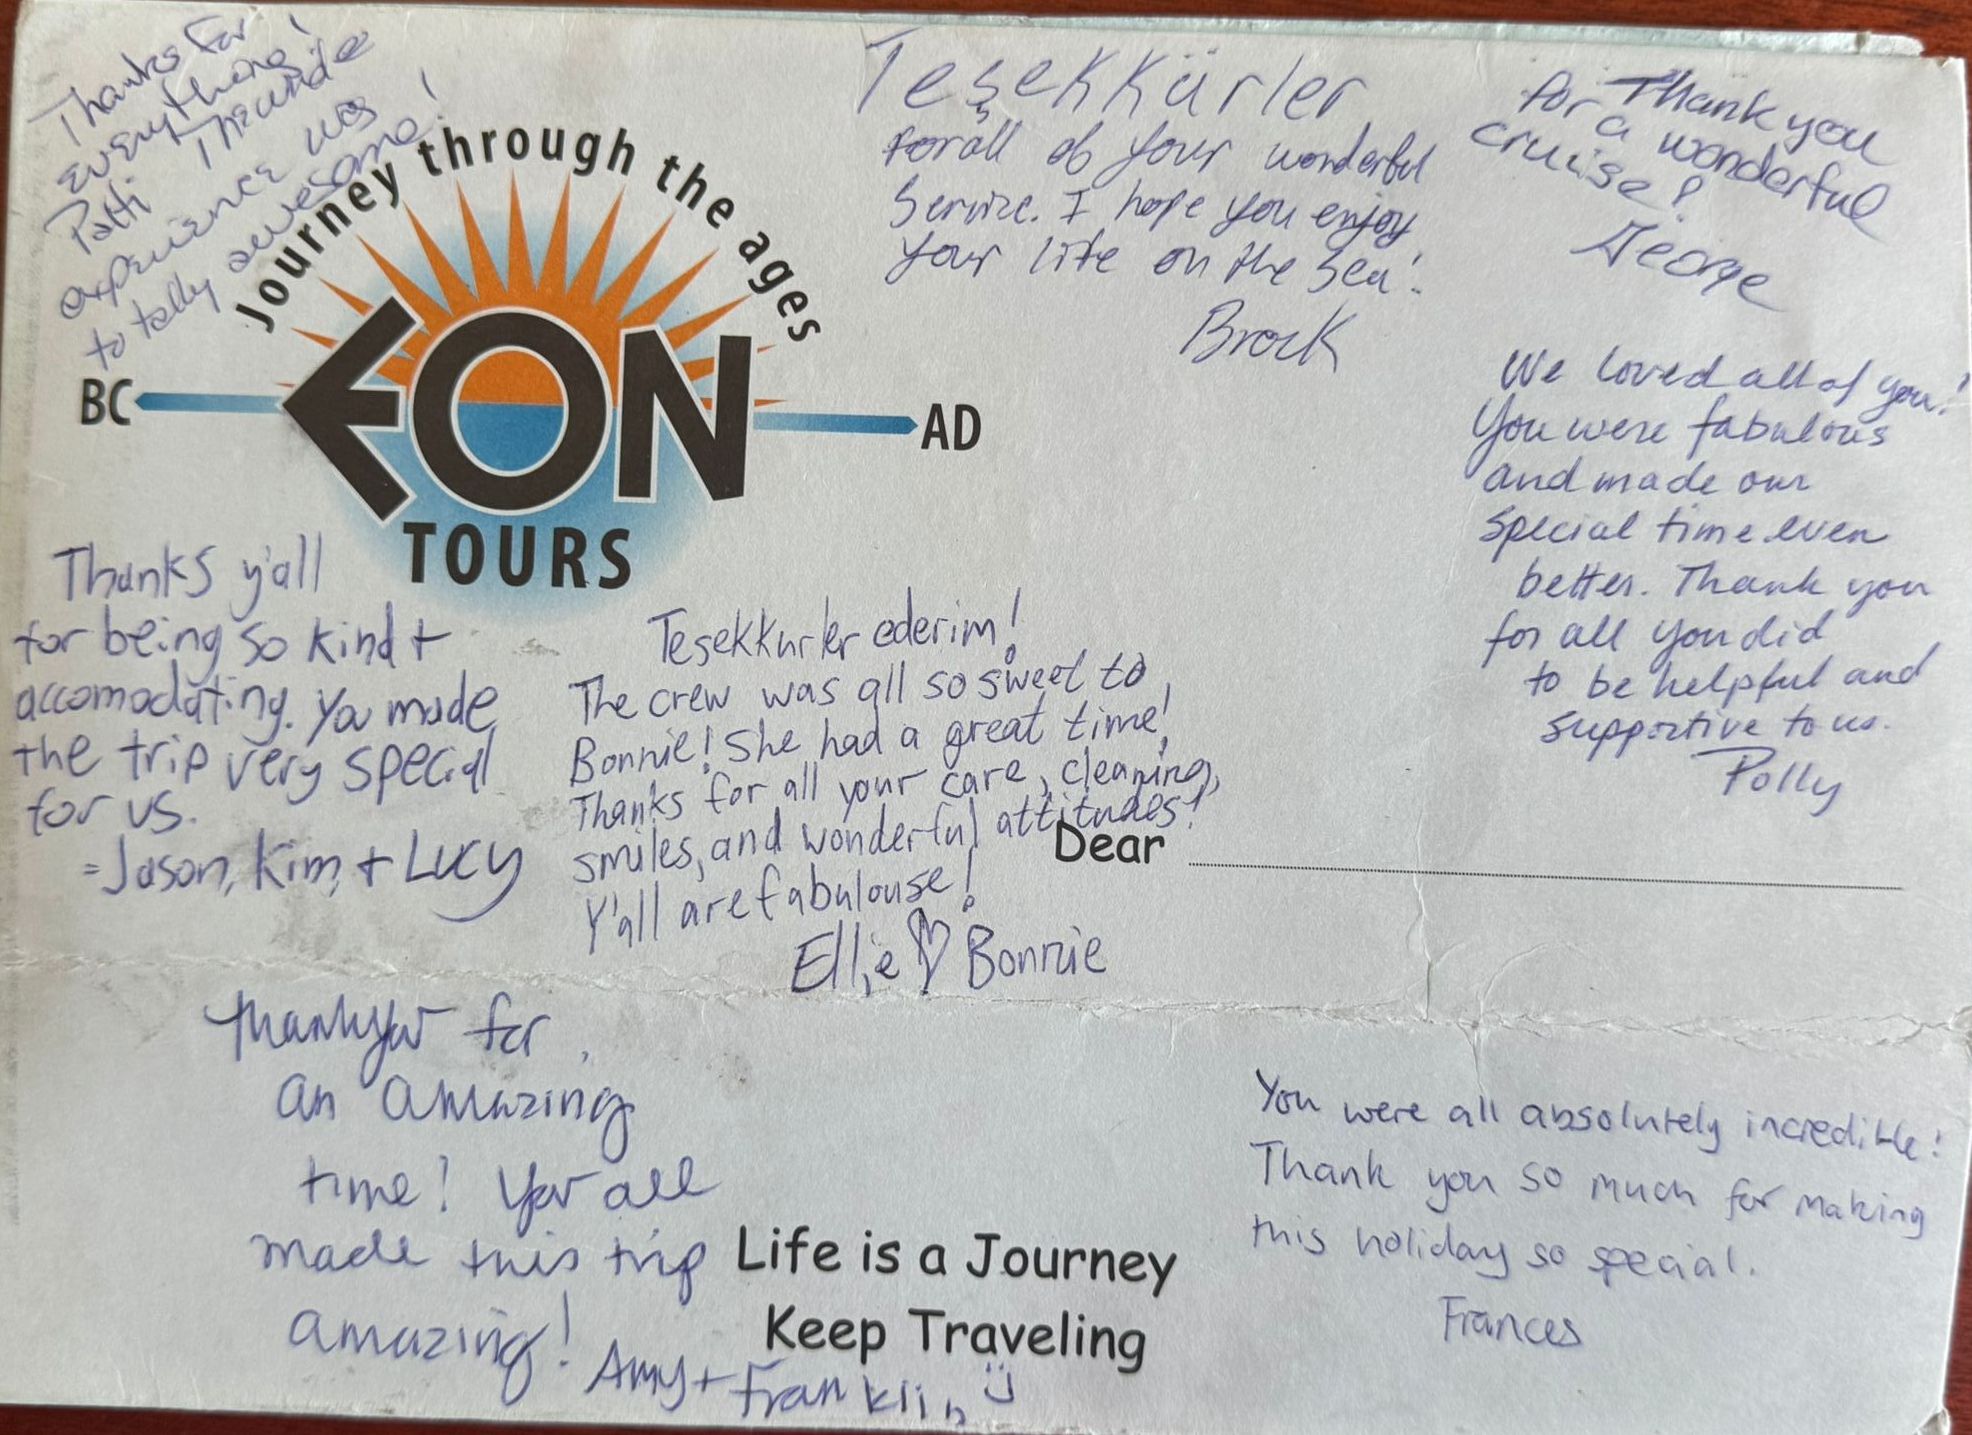 Thanks for
everything!
Patti The whole
experience was
totally awesome!
Journey through the ages
BC
EON
AD
TOURS
Teşekkürler
for all of your wonderful
Service. I hope you enjoy
your life on the Sea!
Brock
Thank you
for a wonderful
cruise!
George
We loved all of you!
You were fabulous
and made our
special time even
better. Thank you
for all you did
to be helpful and
supportive to us.
Polly
Thanks y'all
for being so kind +
accomodating. You made
the trip very special
for us.
=Jason, Kim, + Lucy
Teşekkurler ederim!
The crew was all so sweet to
Bonnie! She had a great time!
Thanks for all your care, cleaning,
smiles, and wonderful attitudes!
Y'all are fabulouse!
Ellie ♡ Bonnie
Dear
Thank you for
an amazing
time! You all
made this trip
amazing!
Amy + Franklin
Life is a Journey
Keep Traveling
You were all absolutely incredible!
Thank you so much for making
this holiday so special.
Frances